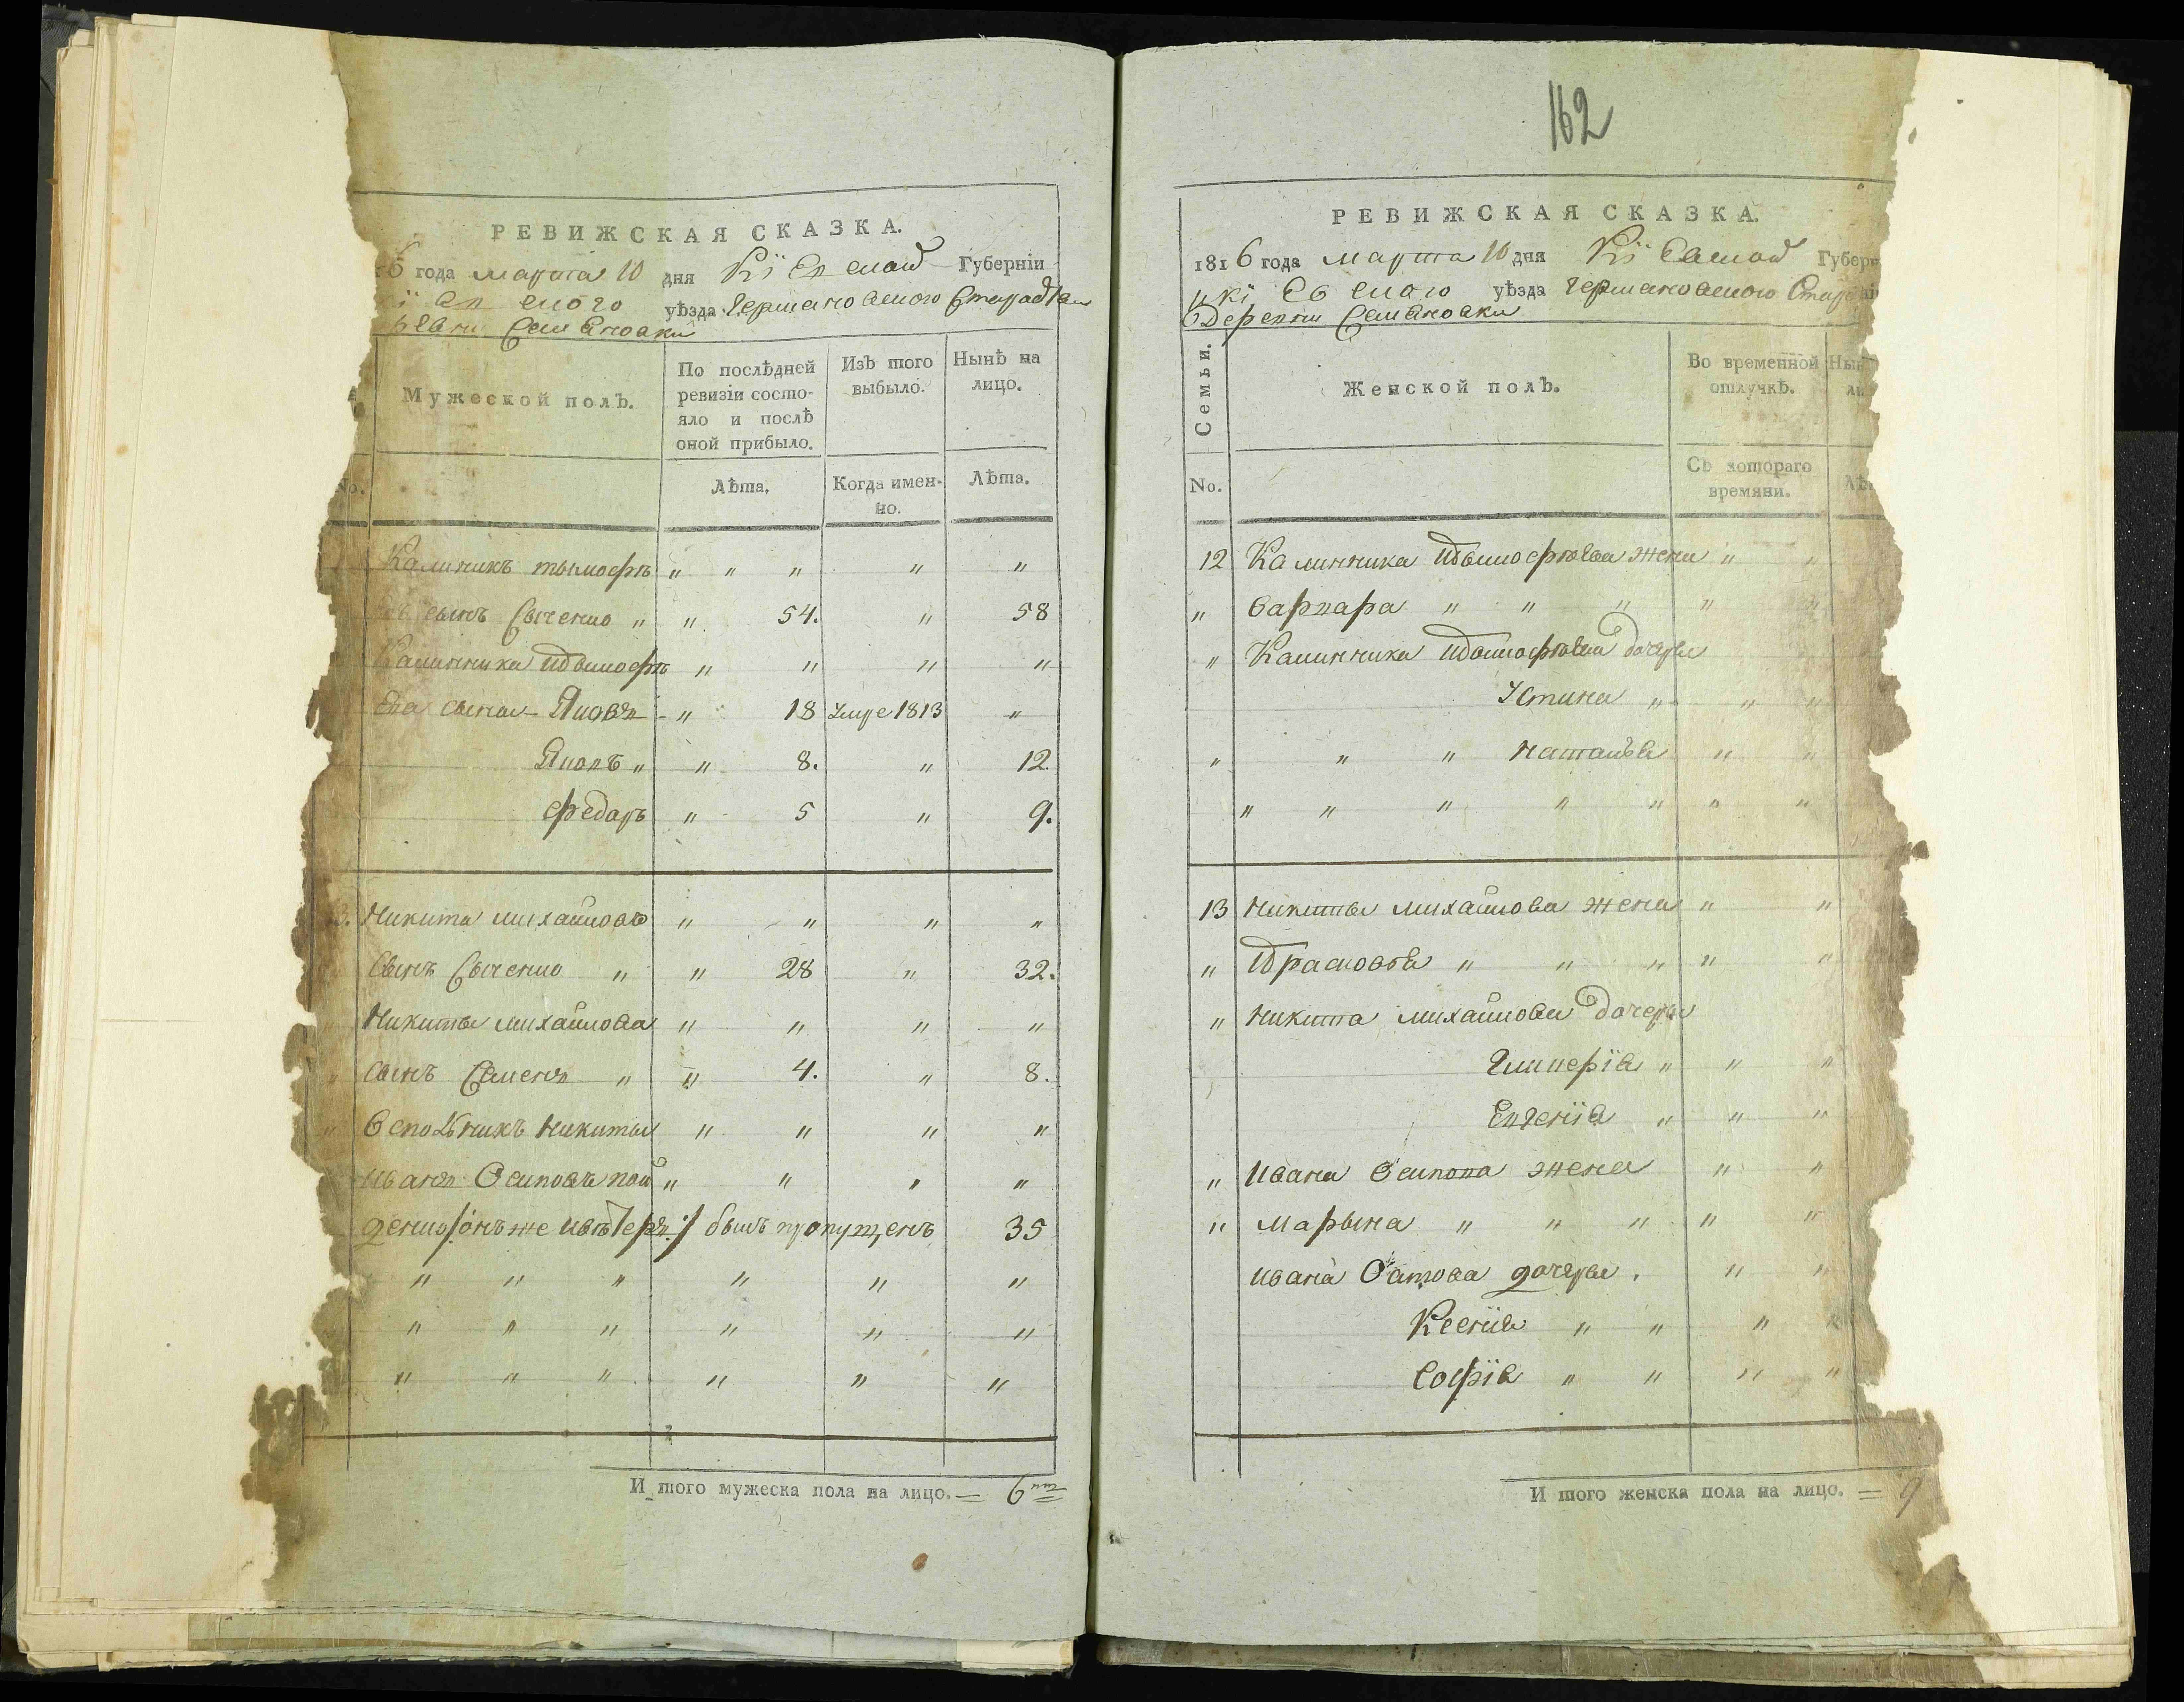 РЕВИЖСКАЯ СКАЗКА.
6 года марта 10 дня Кіевской Губерніи
уѣзда Германовского Староства
Семяновки
Мужеской полъ.
По послѣдней ревизіи состояло и послѣ оной прибыло.
Изъ того выбыло.
Нынѣ на лицо.
No.
Лѣта.
Когда именно.
Лѣта.
Калиникъ тымофѣ " " " " "
сынъ Сыченко " " 54. " 58
Калинника Тымофѣ " " " "
ева сына Яковъ " 18 умре 1813 "
Яковъ " " 8. " 12.
Федаръ " 5 " 9.
Никита михайловъ " " " "
Сынъ Сыченко " " 28 " 32.
" Никиты михайлова " " " "
" Сынъ Семенъ " " 4. " 8.
" Никиты " " " "
иванъ Осиповъ " " " "
былъ пропущенъ 35
" " " " " "
" " " " " "
" " " " " "
И того мужеска пола на лицо. = 6
162
РЕВИЖСКАЯ СКАЗКА.
1816 года марта 10 дня Кіевской Губерн
уѣзда Германовского
Деревни Семяновки
Семьи.
Женской полъ.
Во временной отлучкѣ.
Нын
No.
Съ котораго времяни.
Лѣ
12 Калинника Тымофѣева жена " "
" варвара " " " " "
" Калинника Тымофѣева дочеры
Устина " " "
" " " Наталья " "
" " " " " " "
13 Никиты михайлова жена " "
" Прасковья " " " " "
" Никита михайлова дочеры
Гликерія " " "
Евгенія " " "
" Ивана Осипова жена " "
" Марына " " " " "
Ивана Осипова дочеры " "
Ксенія " " " "
Софія " " " "
И того женска пола на лицо. = 9